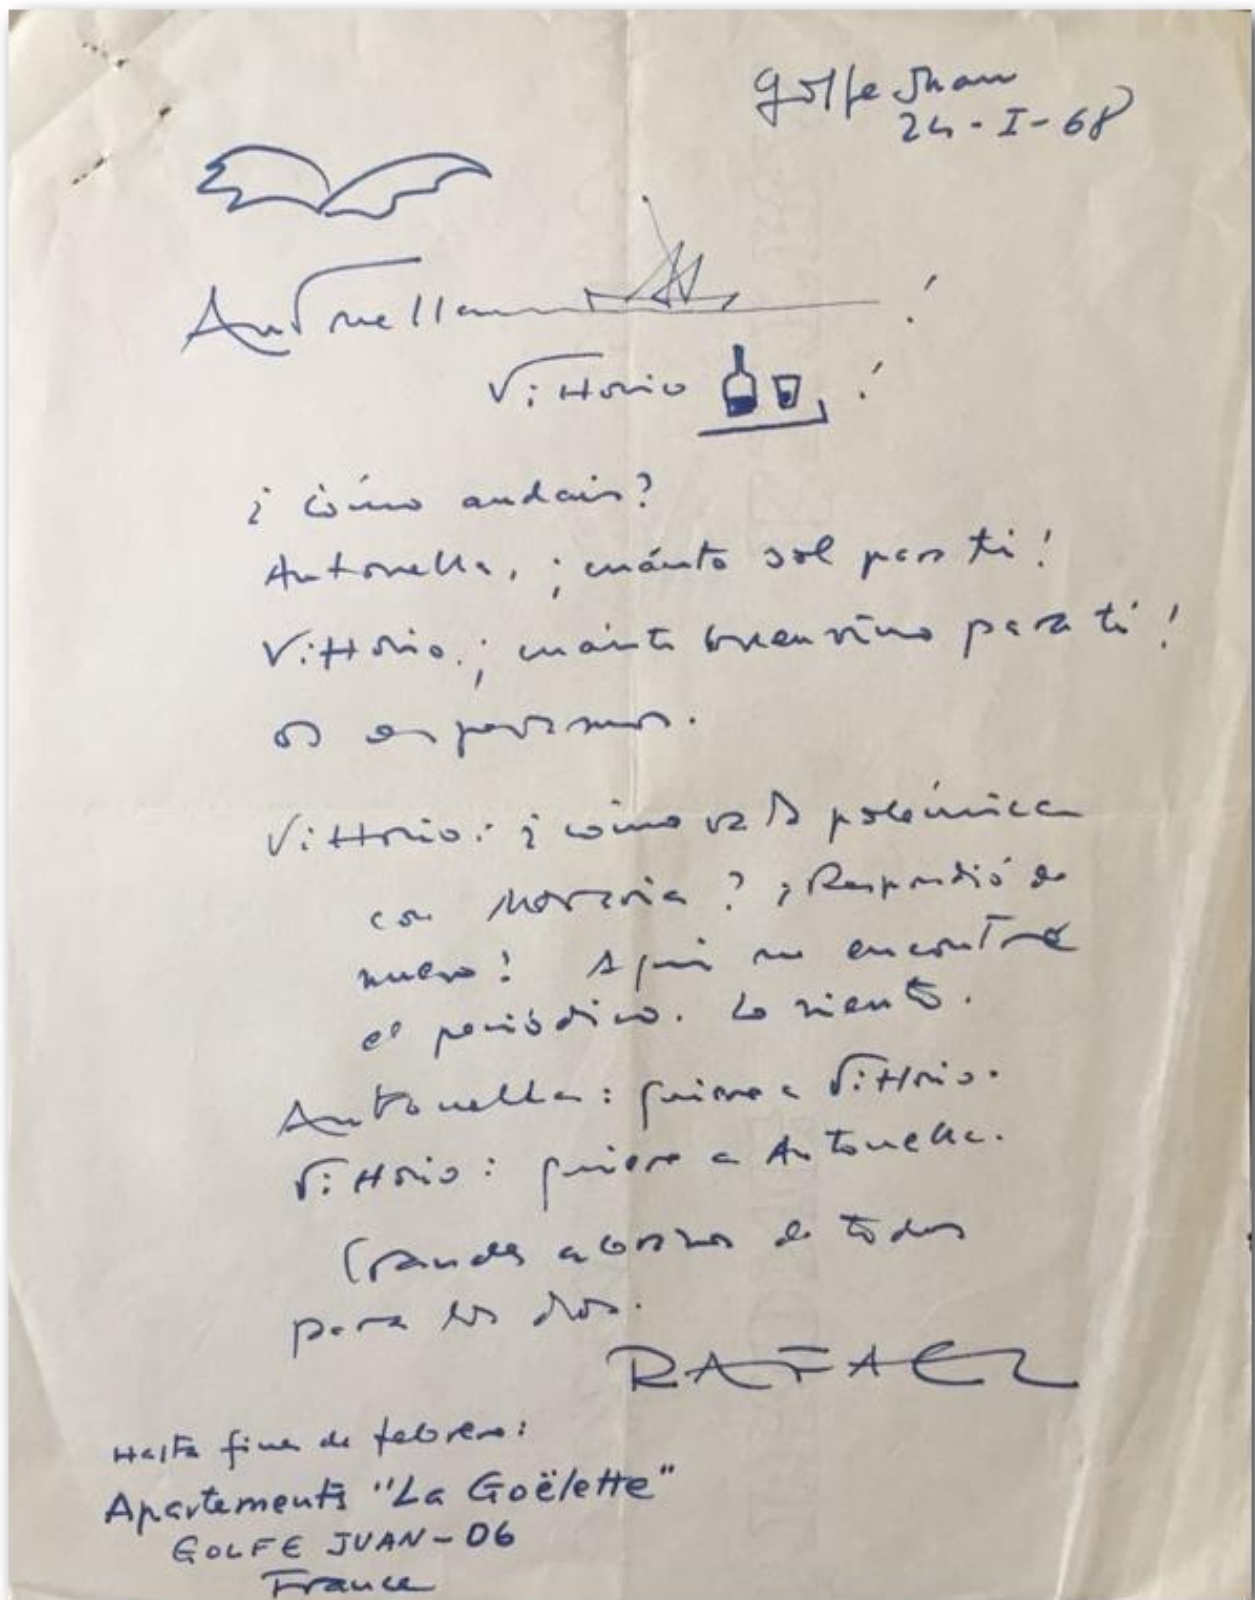 Golfe Juan
24-I-68
Antonella !
Vittorio !
¿Cómo andais?
Antonella, ¡cuánto sol para ti!
Vittorio, ¡cuánto buen vino para ti!
os esperamos.
Vittorio: ¿cómo va la polémica
con Moravia? ¿Respondió de
nuevo? Aquí no encontré
el periódico. Lo siento.
Antonella: quiere a Vittorio.
Vittorio: quiere a Antonella.
Grandes abrazos de todos
para los dos.
RAFAEL
Hasta fines de febrero:
Apartements "La Goëlette"
GOLFE JUAN-06
France